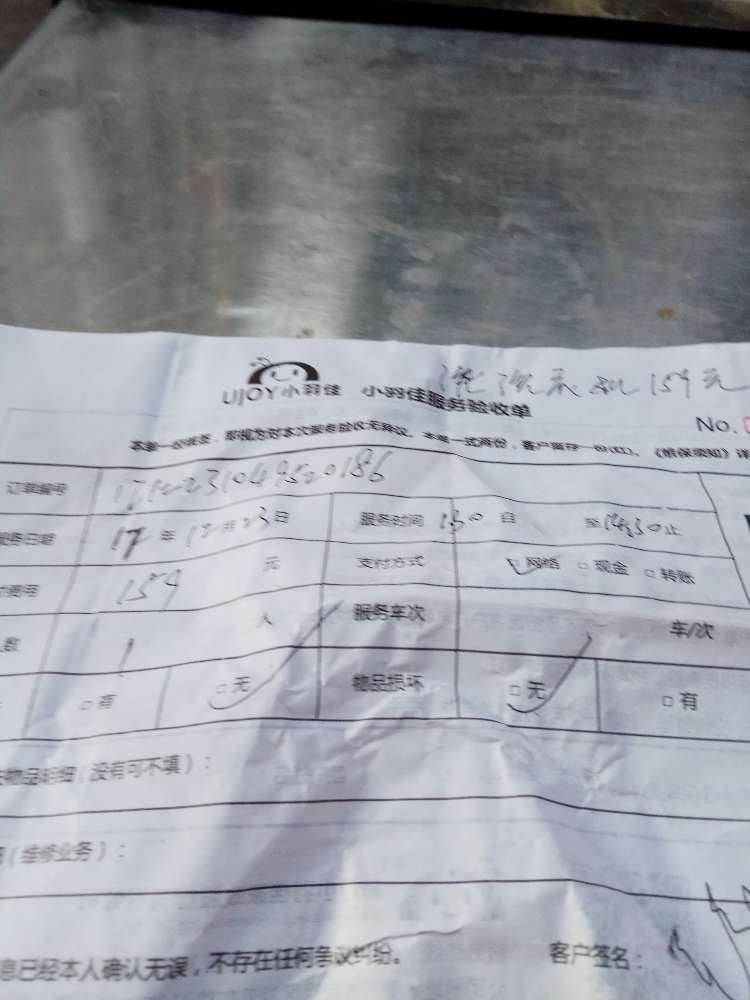 洗洗衣机159元
UJOY小羽佳 小羽佳服务验收单
No.
本单一经签签，即视为对本次服务验收无异议。本单一式两份，客户留存一份(红)。《维保须知》详
订单编号
服务日期 17年12月23日 服务时间 自 至14:30止
费用 159元 支付方式 ☑网络 □现金 □转账
人数 1人 服务车次 车/次
□有 ☑无 物品损坏 ☑无 □有
物品明细（没有可不填）：
（维修业务）：
息已经本人确认无误，不存在任何争议纠纷。 客户签名：